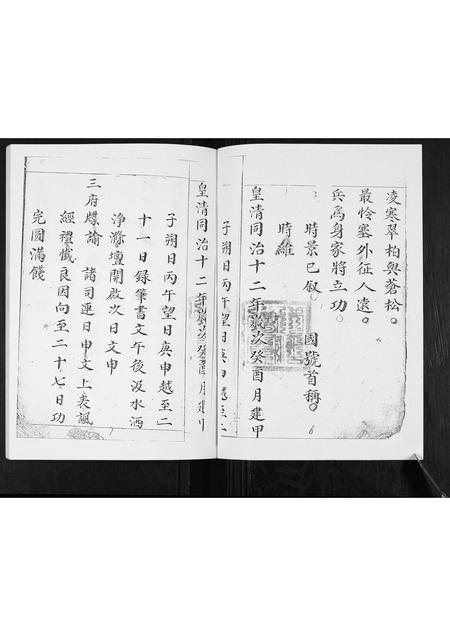 凌寒翠柏與蒼松。
最怜塞外征人遠。
兵為身家將立功。
時景已叙。 國號首稱。
時維
皇清同治十二年歲次癸酉月建甲
子朔日丙午望日庚申越至二
6
皇清同治十二年歲次癸酉月建
子朔日丙午望日庚申越至二
十一日錄筆書文午後汲水洒
淨滌壇開啟次日文申
三府牒諭 諸司連日申文上表諷
經禮懺良因向至二十七日功
完圓滿餞